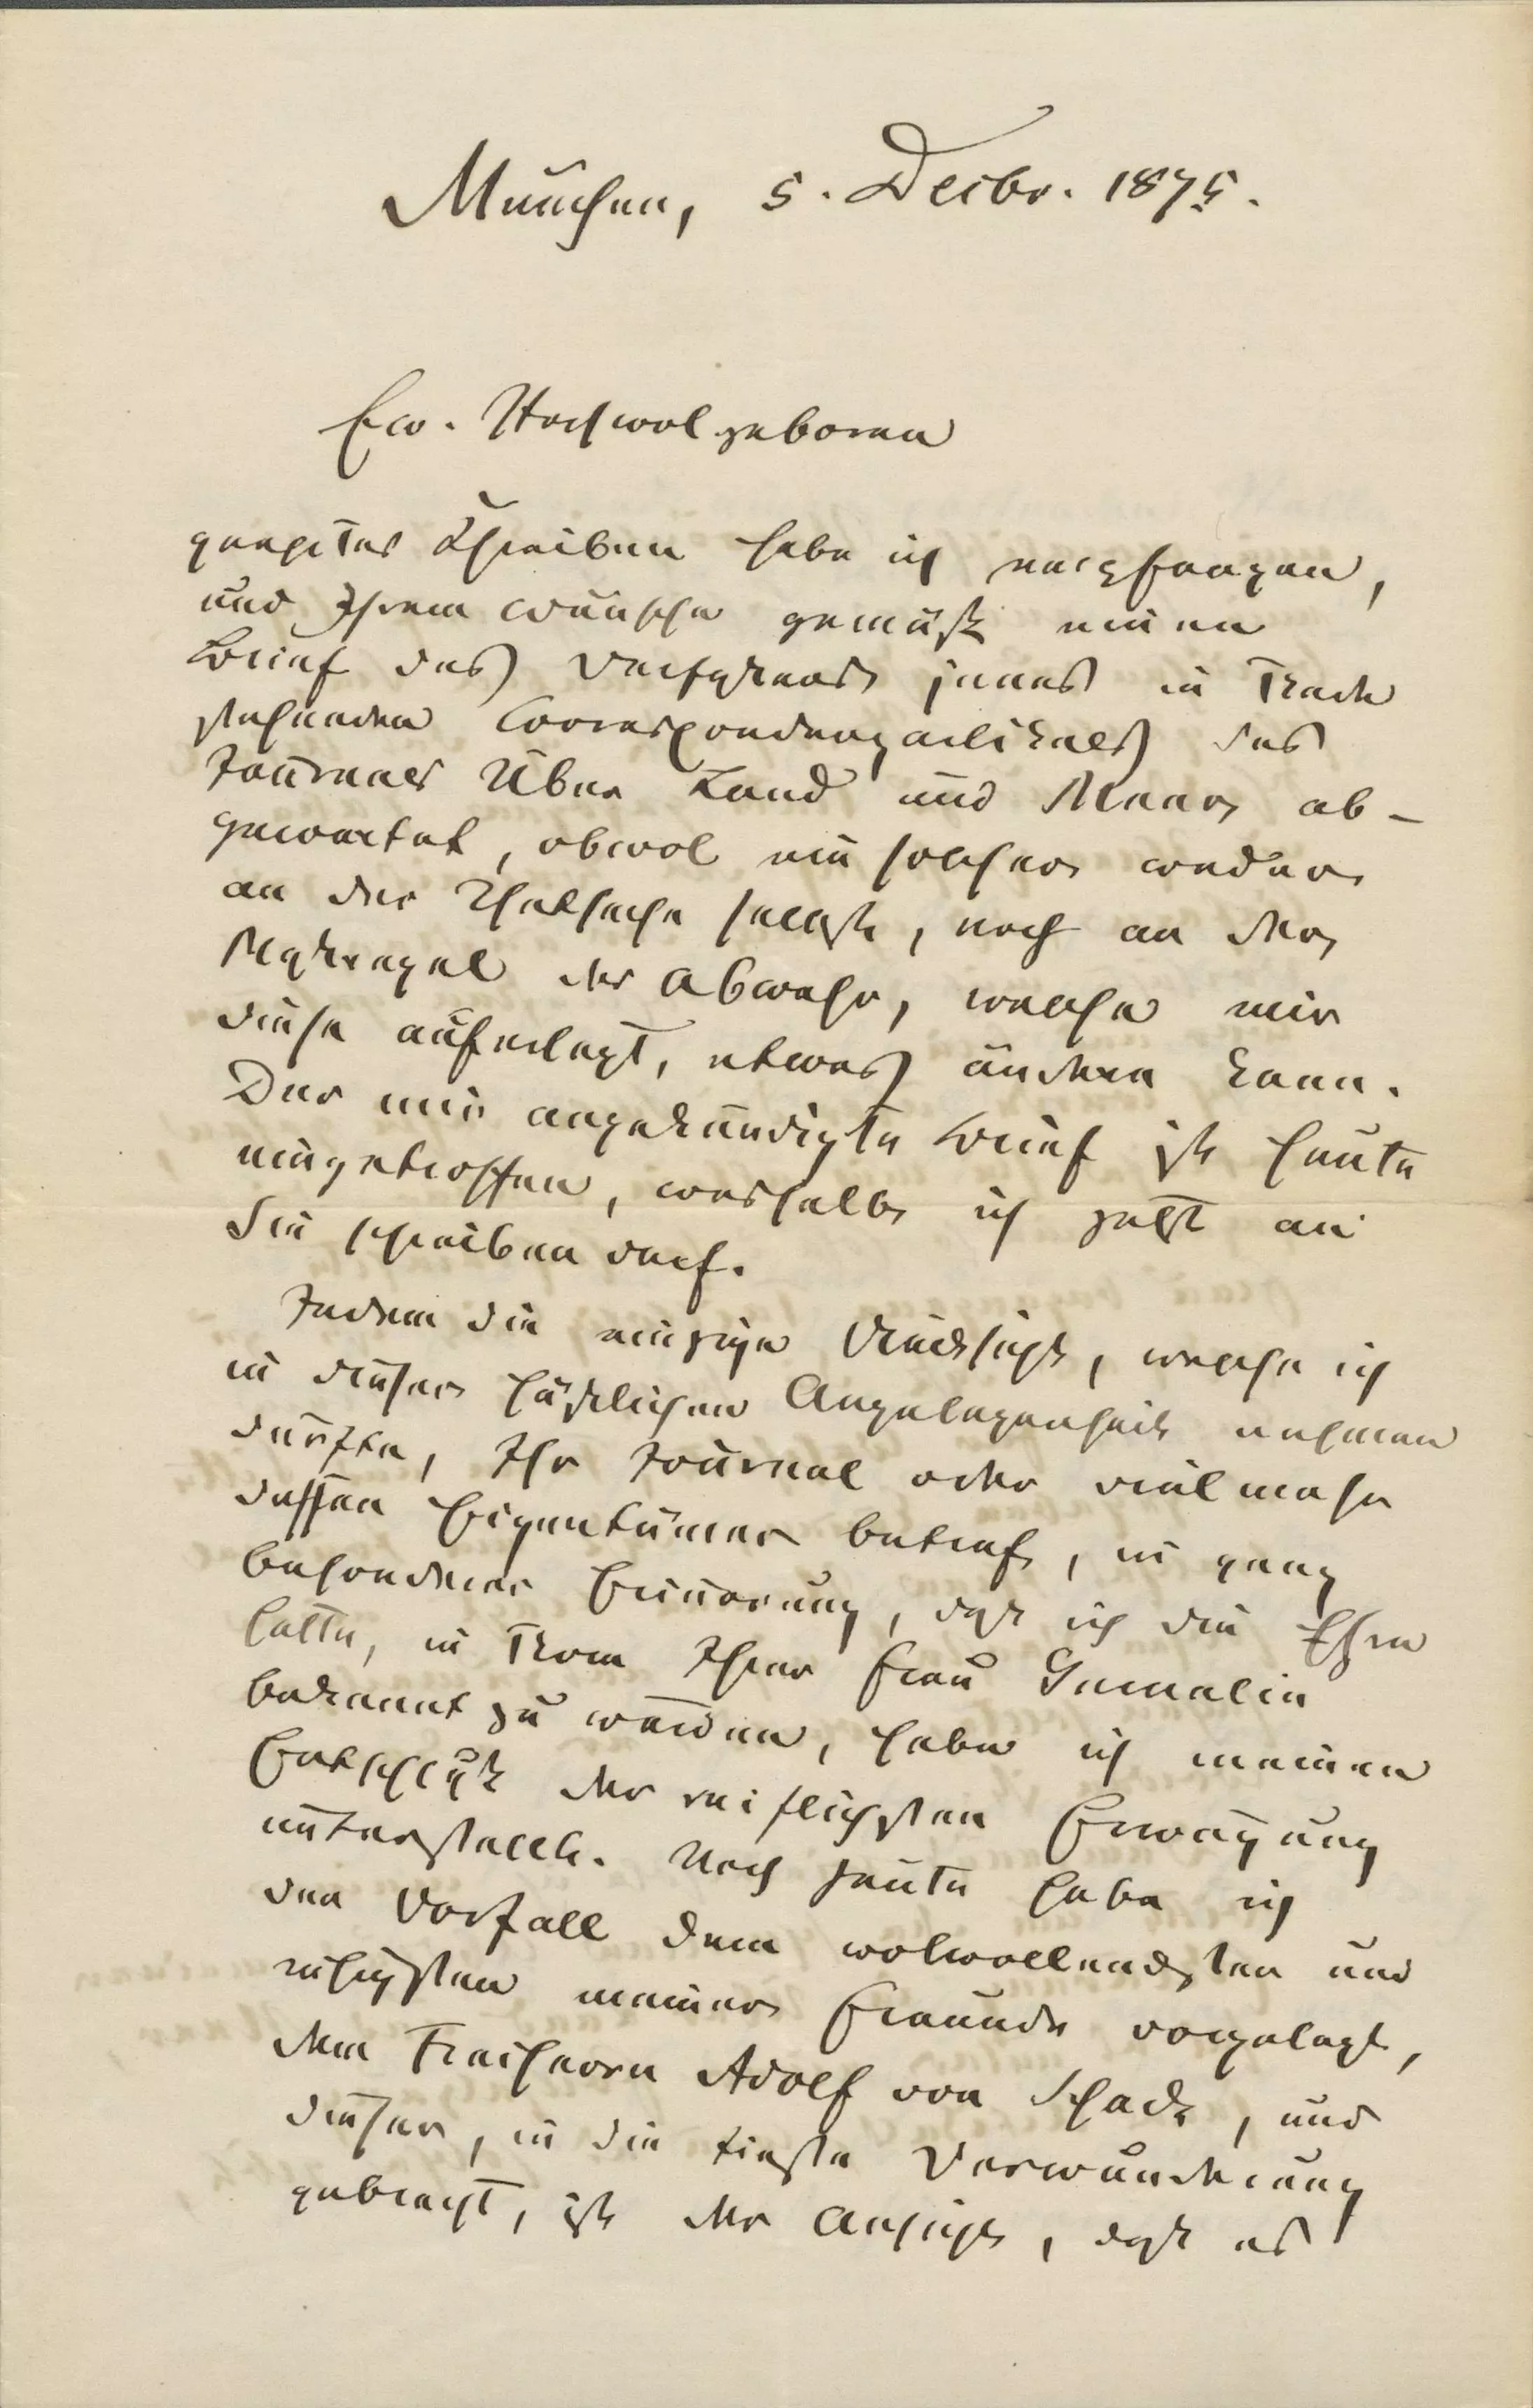 München, 5. Decbr. 1875.
Ew. Hochwolgeboren
geehrtes Schreiben habe ich empfangen,
und Ihrem Wunsche gemäß einen
Brief des Verfaßers jenes in Rede
stehenden Correspondenzartikels des
Journals Über Land und Meer ab-
gewartet, obwol ein solcher weder
an der Thatsache selbst, noch an der
Maßregel der Abwehr, welche mir
diese auferlegt, etwas ändern kann.
Der mir angekündigte Brief ist heute
eingetroffen, weshalb ich jetzt an
Sie schreiben darf.
Indem die einzige Rücksicht, welche ich
in dieser häßlichen Angelegenheit nehmen
durfte, Ihr Journal oder vielmehr
dessen Eigentümer betraf, in ganz
besonderer Erinnerung, daß ich die Ehre
hatte, in Rom Ihrer Frau Gemalin
bekannt zu werden, habe ich meinen
Entschluß der reiflichsten Erwägung
unterstellt. Noch heute habe ich
den Vorfall dem wolwollendsten und
ruhigsten meiner Freunde vorgelegt,
dem Freiherrn Adolf von Schack, und
dieser, in die tiefste Verwunderung
gebracht, ist der Ansicht, daß es